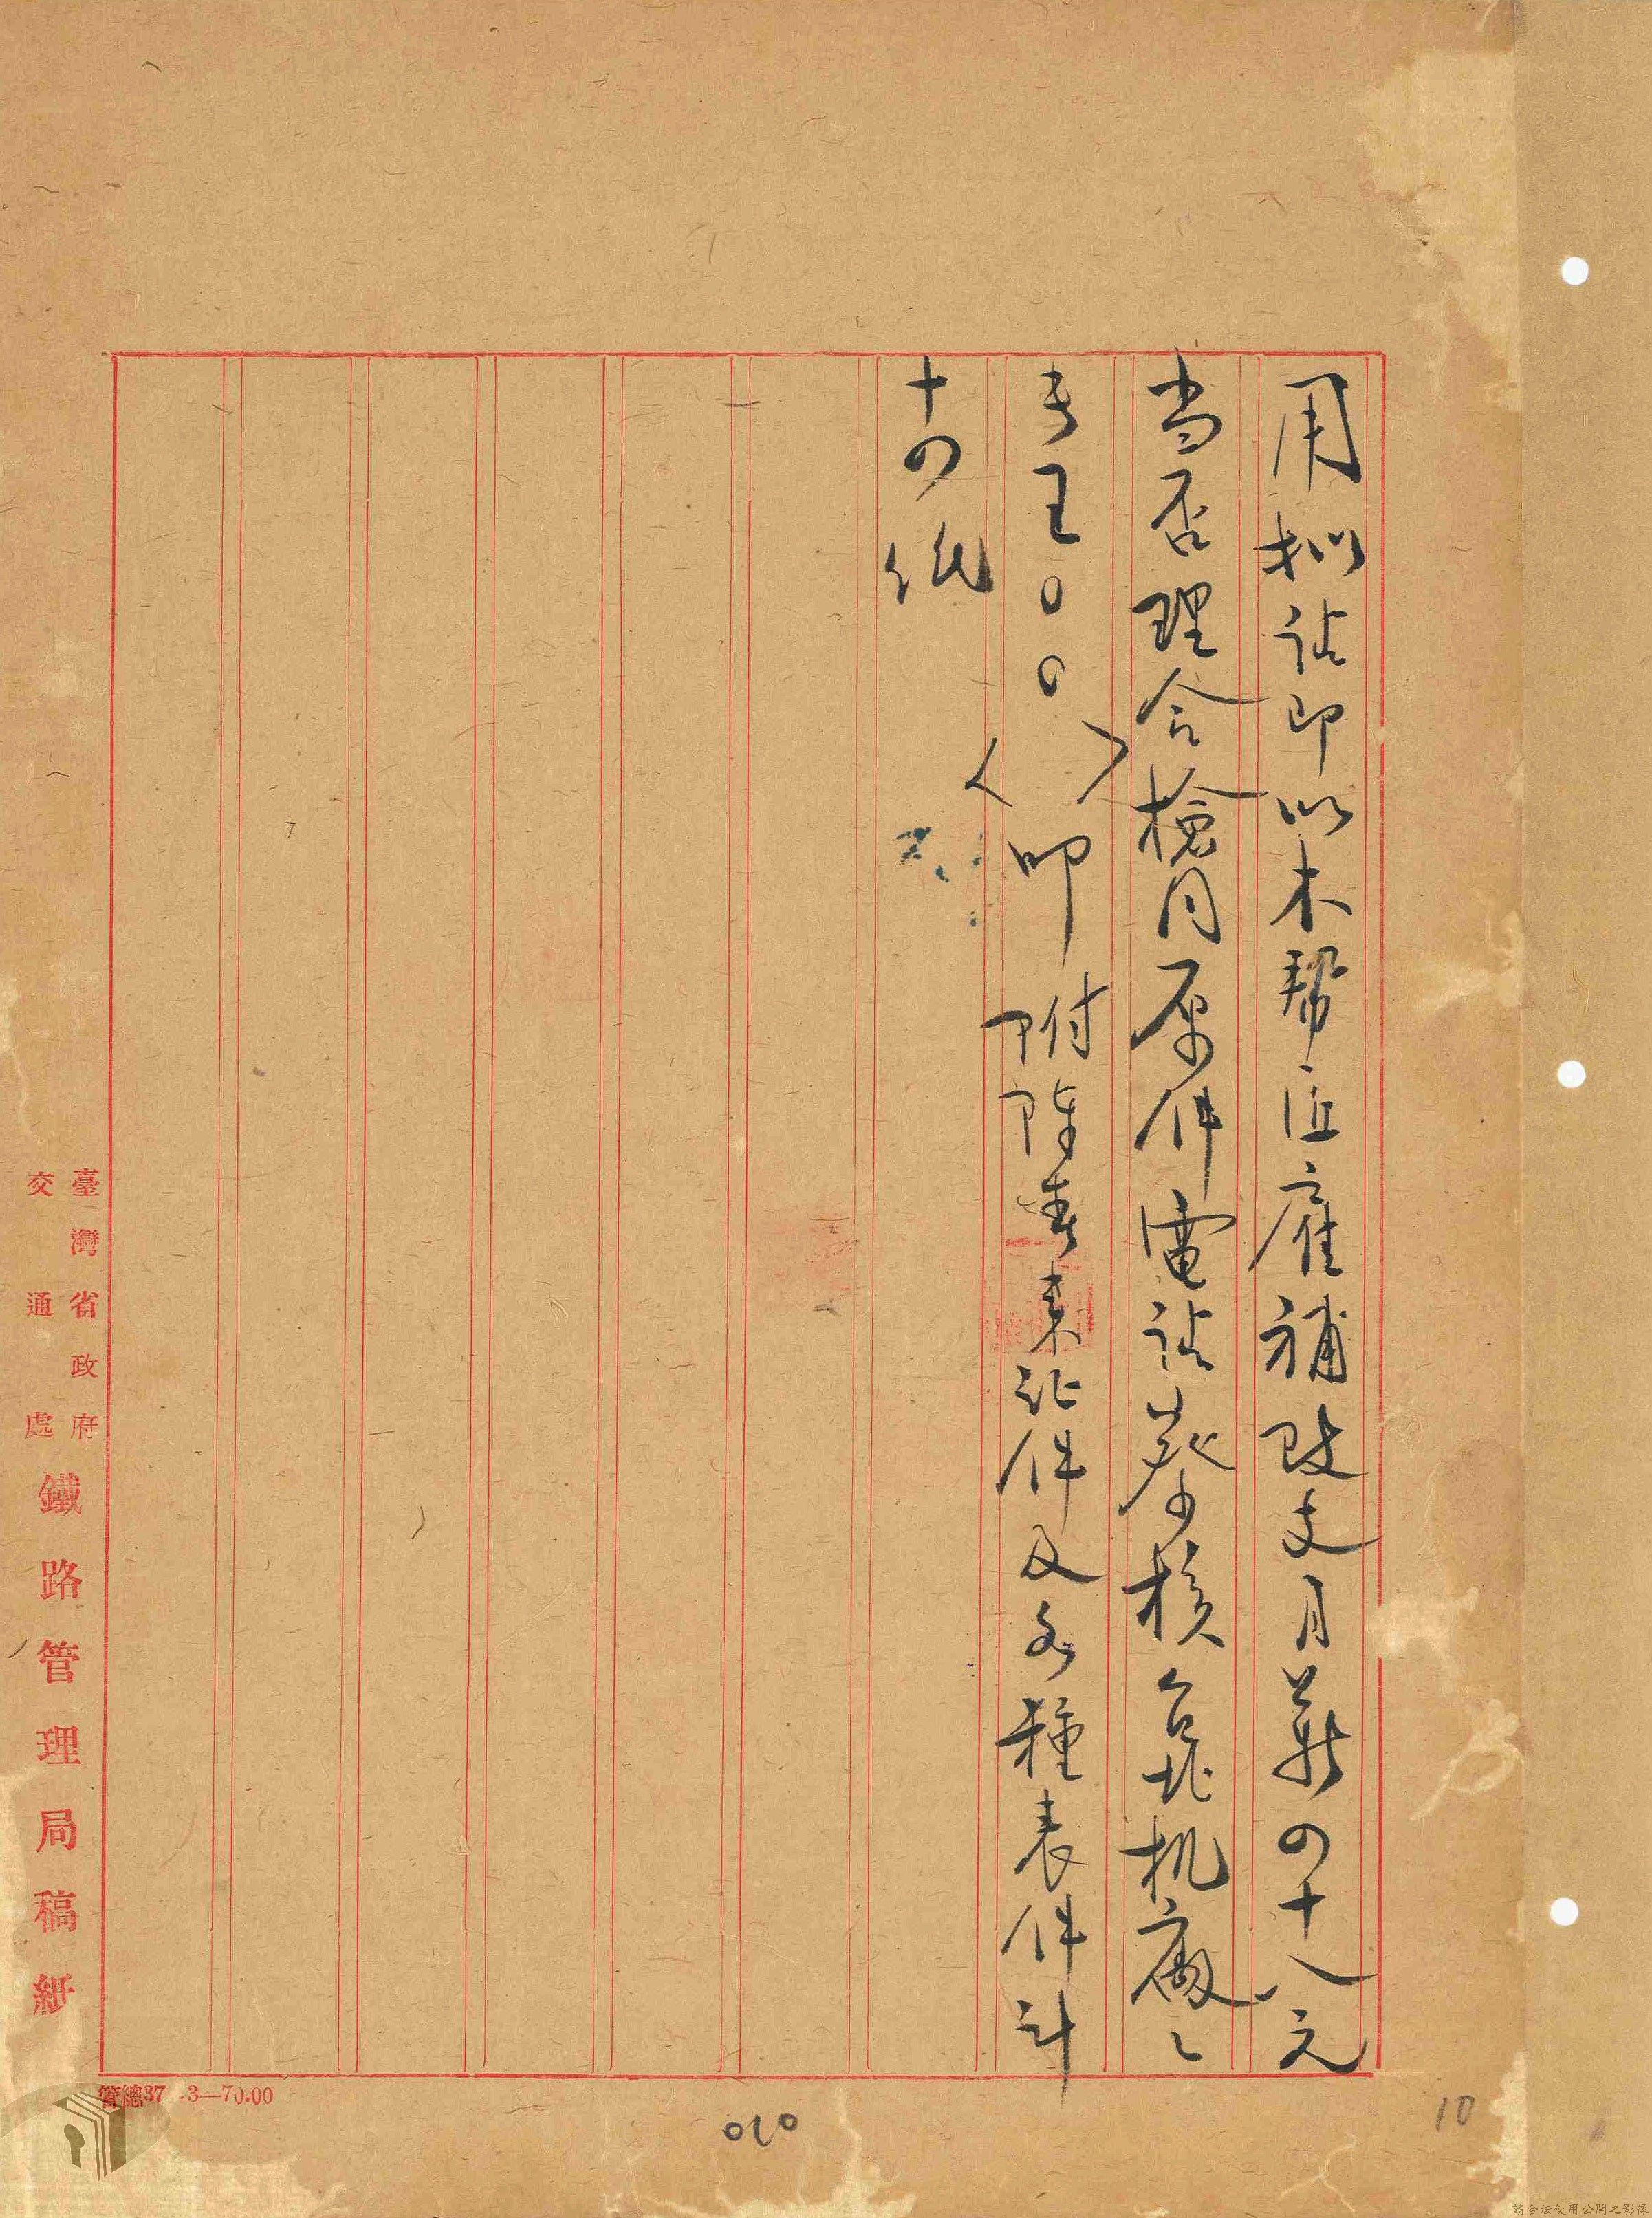 用擬請即以木幫匠雇補改支月薪四十八元
当否理合檢同原件電請鑒核台北机廠
〇〇〈 〉叩附陳春東証件及各種表件計
十四纸
臺灣省政府
交通處
鐵路管理局稿紙
管總37 -3—70.00
010
10
請合法使用公開之影像